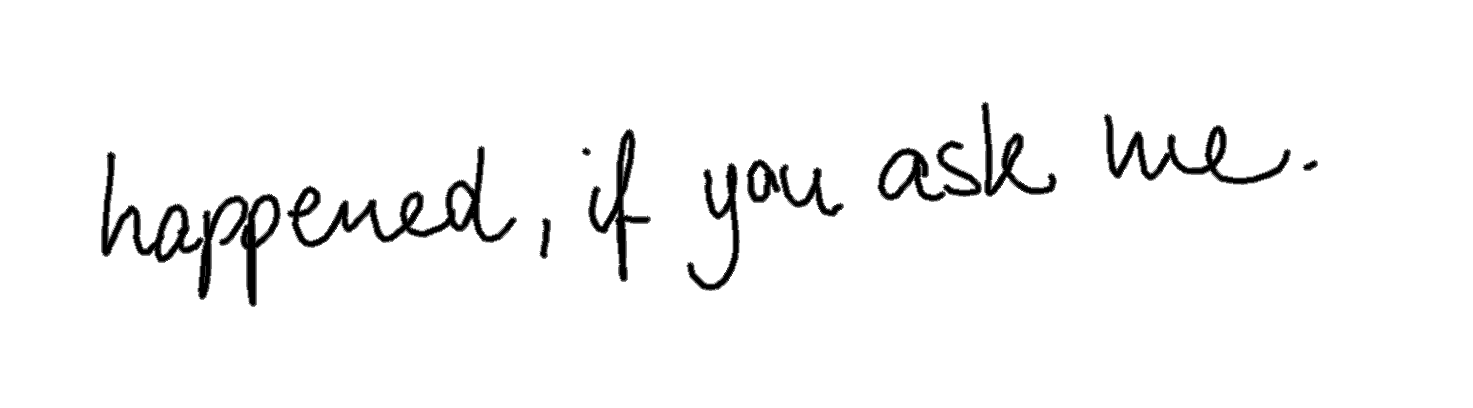 happened, if you ask me.